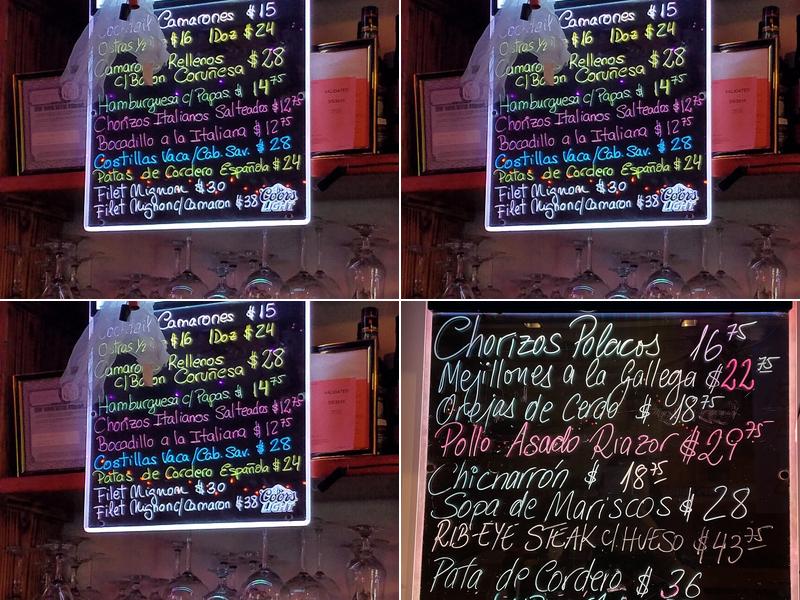 Cocktail Camarones $15
Ostras ½ $16 1Doz $24
Camaro Rellenos $28
c/Bacon Coruñesa
Hamburguesa c/Papas $14.75
Chorizos Italianos Salteados $12.75
Bocadillo a la Italiana $12.75
Costillas Vaca/Cab. Sav. $28
Patas de Cordero Española $24
Filet Mignon $30
Filet Mignon c/Camaron $38
Coors
LIGHT
VALIDATED
Camarones $15
Ostras ½ $16 1Doz $24
Camaro Rellenos $28
c/Bacon Coruñesa
Hamburguesa c/Papas $14.75
Chorizos Italianos Salteados $12.75
Bocadillo a la Italiana $12.75
Costillas Vaca/Cab. Sav. $28
Patas de Cordero Española $24
Filet Mignon $30
Filet Mignon c/Camaron $38
Coors
LIGHT
VALIDATED
Cocktail Camarones $15
Ostras ½ $16 1Doz $24
Rellenos $28
c/Bacon Coruñesa
Hamburguesa c/Papas $14.75
Chorizos Italianos Salteados $12.75
Bocadillo a la Italiana $12.75
Costillas Vaca/Cab. Sav. $28
Patas de Cordero Española $24
Filet Mignon $30
Filet Mignon c/Camaron $38
Coors
LIGHT
VALIDATED
Chorizos Polacos 16.75
Mejillones a la Gallega $22.75
Orejas de Cerdo $18.75
Pollo Asado Riazor $29.75
Chicharrón $18.75
Sopa de Mariscos $28
RIB-EYE STEAK c/HUESO $43.75
Pata de Cordero $36